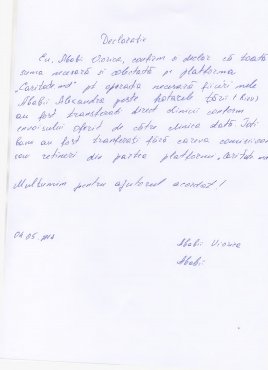 Declaratie
Eu, Ababi Viorica, confirm și declar că toată
suma necesară și solicitată pe platforma
"Caritate.md" pt operația necesară fiicei mele
Ababii Alexandra peste hotarele țării (Kiev)
au fost transferați direct clinicii conform
invoisului oferit de către clinica dată. Toți
banii au fost tranferați fără careva comisioane
sau rețineri din partea platformei "Caritate.md
Multumim pentru ajutorul acordat!
Ababii Viorica
Ababii